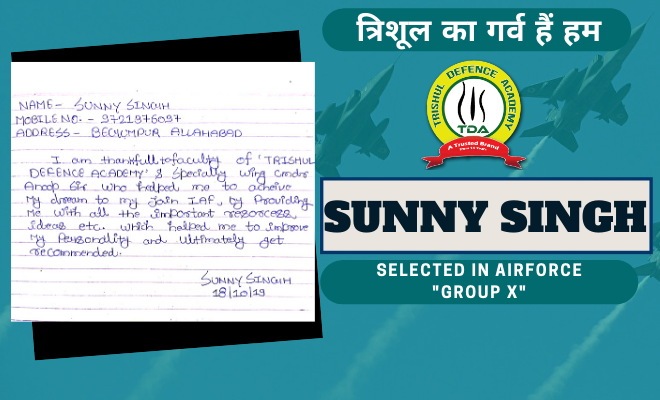 त्रिशूल का गर्व हैं हम
TRISHUL DEFENCE ACADEMY
TDA
A Trusted Brand
SUNNY SINGH
SELECTED IN AIRFORCE
"GROUP X"
NAME- SUNNY SINGH
MOBILE NO. - 9721976097
ADDRESS - BECKUMPUR ALLAHABAD
I am thankfull to faculty of 'TRISHUL
DEFENCE ACADEMY' & specially wing cmdr
Anoop Sir who helped me to acheive
My dream to my join IAF, by Providing
Me with all the important resorcess,
ideas etc. which helped me to improve
My Personality and ultimately get
recommended.
SUNNY SINGH
18/10/19